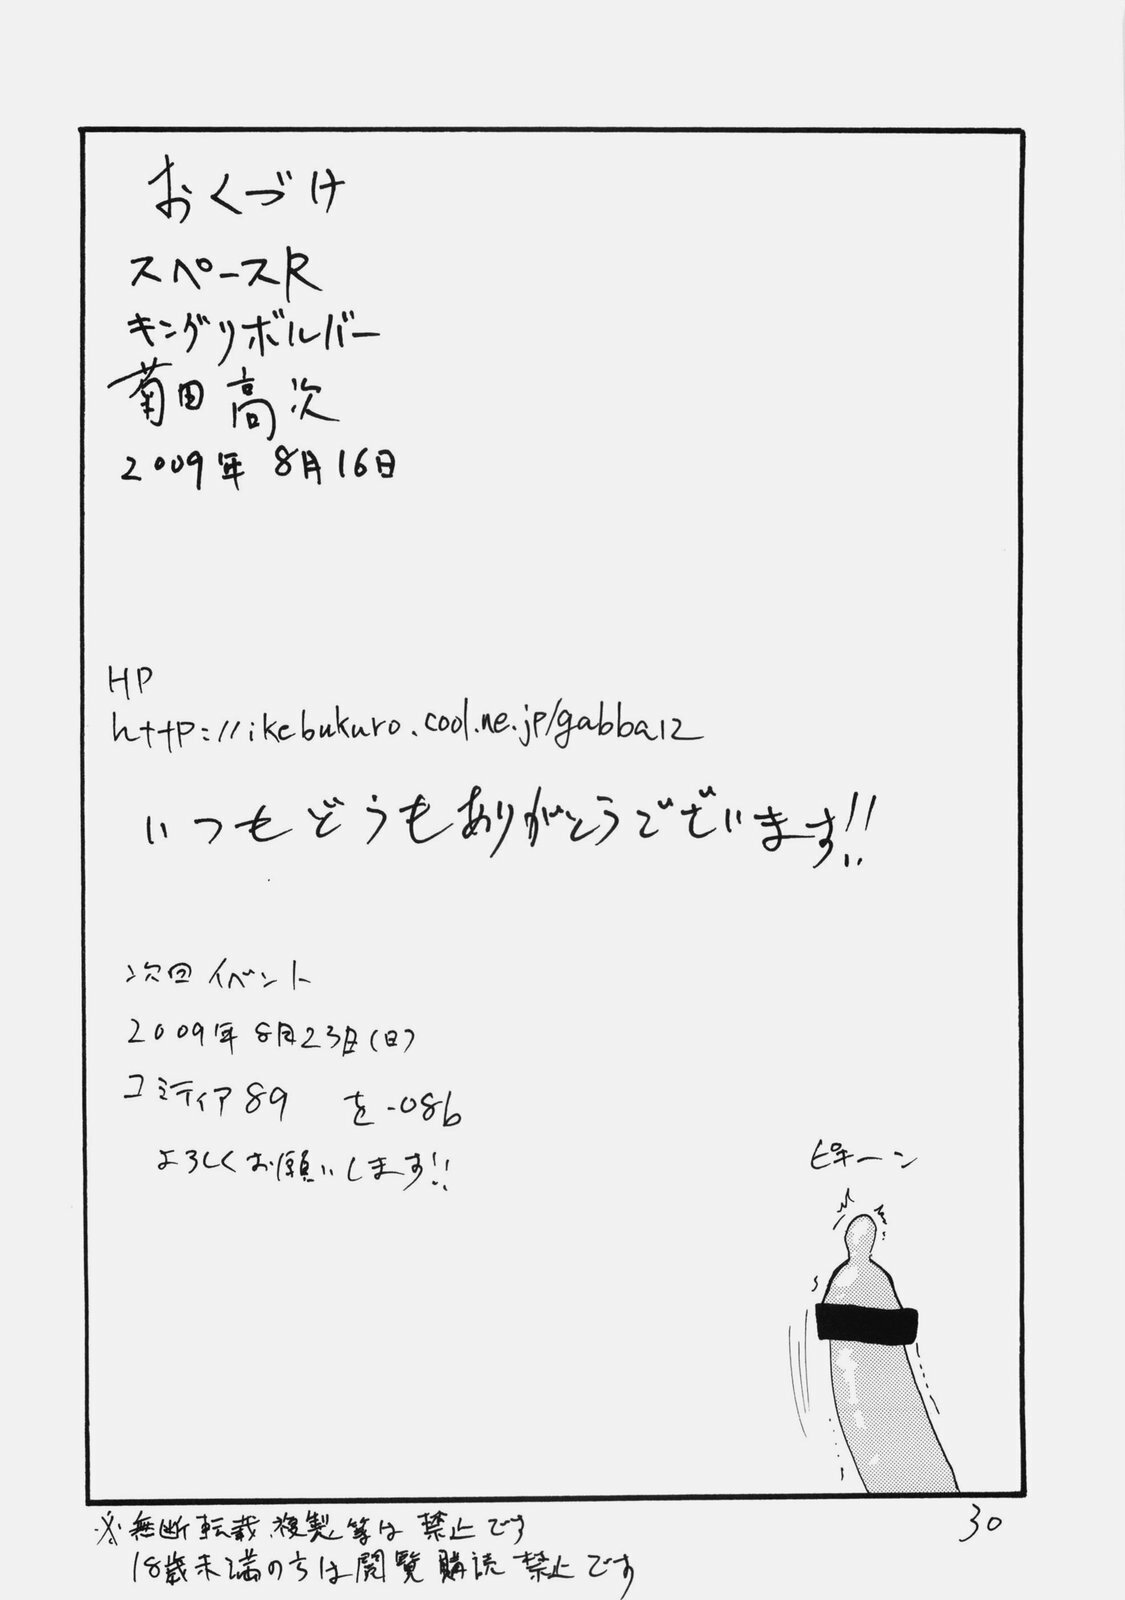 おくづけ
スペースR
キングリボルバー
菊田 高次
2009年 8月16日
HP
http://ikebukuro.cool.ne.jp/gabba12
いつもどうもありがとうございます!!
次回イベント
2009年8月23日(日)
コミティア89 を-08b
よろしくお願いします!!
ピキーン
30
※無断転載、複製等は禁止です
18歳未満の方は閲覧購読禁止です